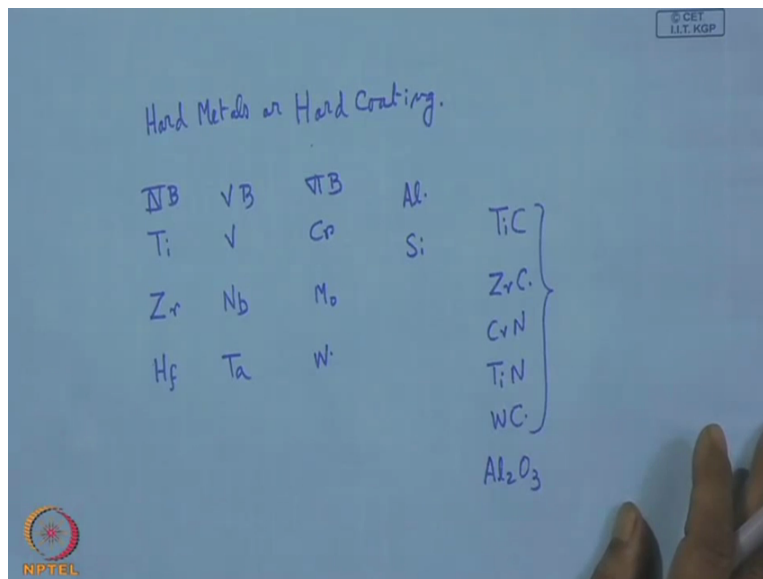 © CET
I.I.T. KGP
Hard Metals or Hard Coating.
IVB VB VIB Al.
Ti V Cr Si
Zr Nb Mo
Hf Ta W.
TiC
ZrC.
CrN
TiN
WC.
Al₂O₃
NPTEL